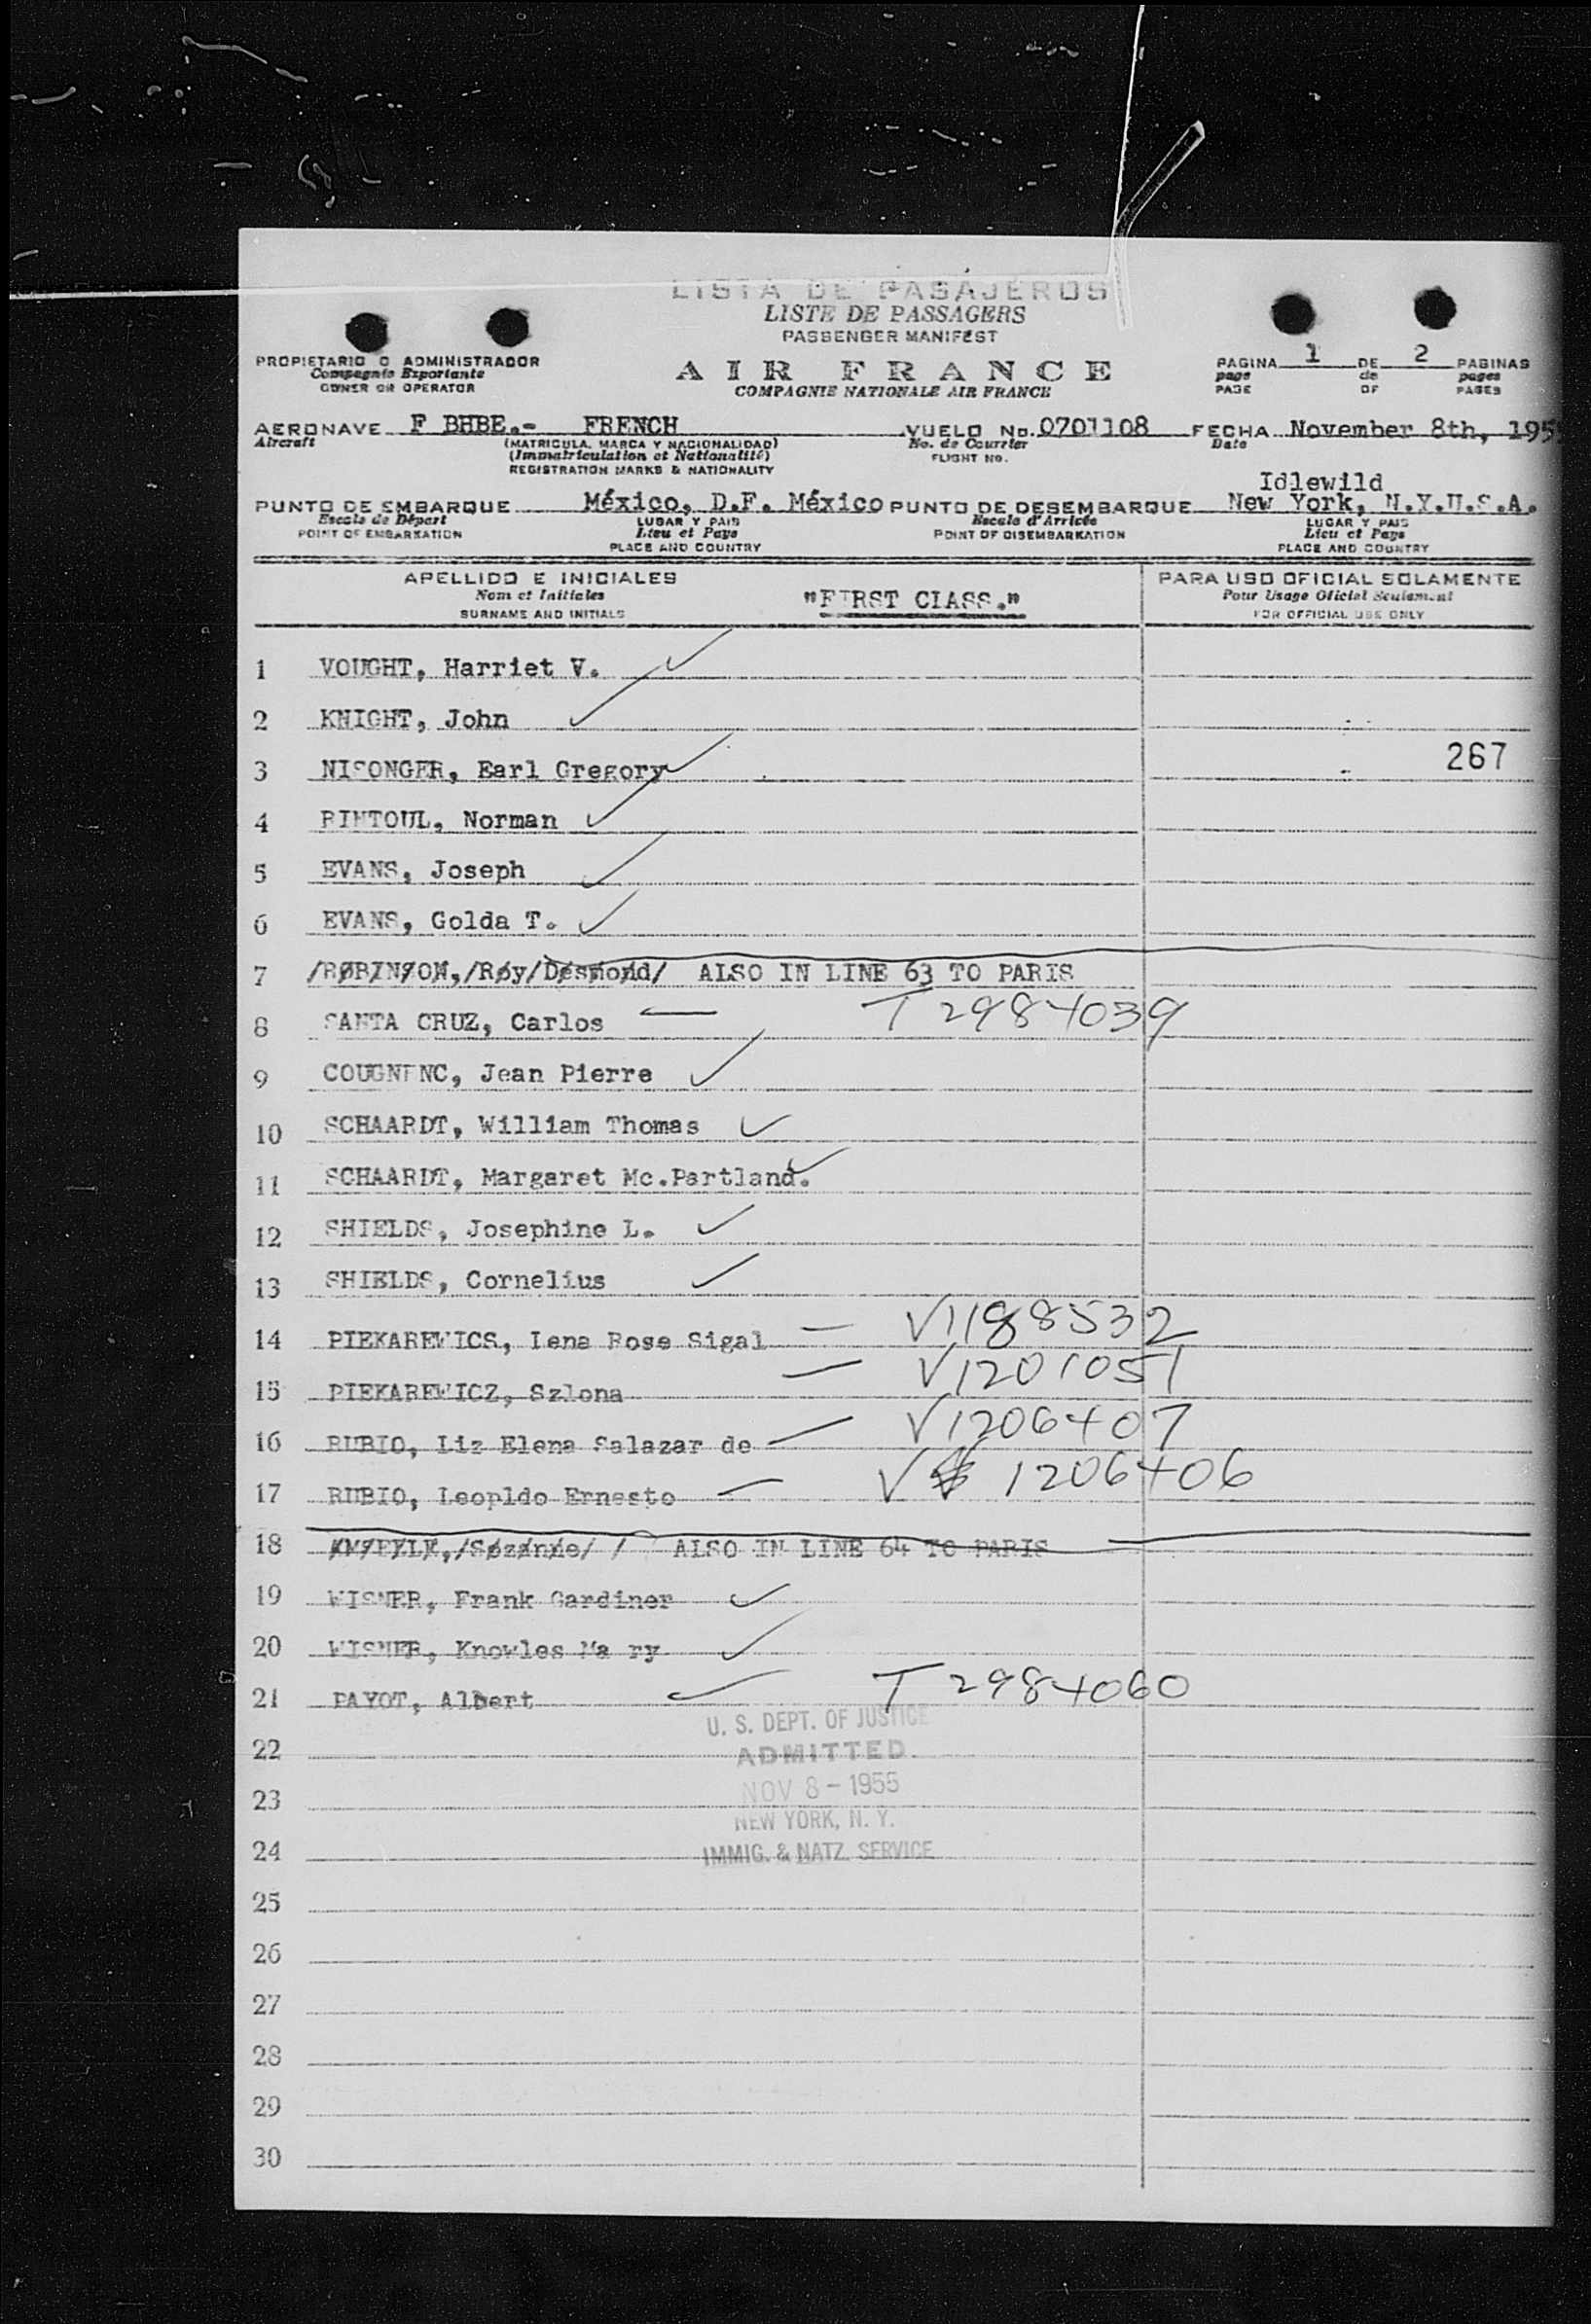 LISTA DE PASAJEROS
LISTE DE PASSAGERS
PASSENGER MANIFEST
PROPIETARIO O ADMINISTRADOR
Compagnie Exportante
OWNER OR OPERATOR
AIR FRANCE
COMPAGNIE NATIONALE AIR FRANCE
PAGINA 1 DE 2 PAGINAS
page de pages
PAGE OF PAGES
AERONAVE F BHBE.- FRENCH VUELO No. 0701108 FECHA November 8th, 195
Aircraft (MATRICULA, MARCA Y NACIONALIDAD) No. de Courrier Date
(Immatriculation et Nationalité) FLIGHT NO.
REGISTRATION MARKS & NATIONALITY
Idlewild
PUNTO DE EMBARQUE México, D.F. México PUNTO DE DESEMBARQUE New York, N.Y.U.S.A.
Escale de Départ LUGAR Y PAIS Escale d'Arrivée LUGAR Y PAIS
POINT OF EMBARKATION Lieu et Pays POINT OF DISEMBARKATION Lieu et Pays
PLACE AND COUNTRY PLACE AND COUNTRY
APELLIDO E INICIALES PARA USO OFICIAL SOLAMENTE
Nom et Initiales "FIRST CLASS." Pour Usage Officiel Seulement
SURNAME AND INITIALS FOR OFFICIAL USE ONLY
1 VOUGHT, Harriet V.
2 KNIGHT, John
3 NISONGER, Earl Gregory 267
4 RINTOUL, Norman
5 EVANS, Joseph
6 EVANS, Golda T.
7 /ROBINSON,/Roy/Desmond/ ALSO IN LINE 63 TO PARIS
8 SANTA CRUZ, Carlos T 2984039
9 COUGNENC, Jean Pierre
10 SCHAARDT, William Thomas
11 SCHAARDT, Margaret Mc.Partland.
12 SHIELDS, Josephine L.
13 SHIELDS, Cornelius
14 PIEKAREWICS, Lena Rose Sigal V1188532
15 PIEKAREWICZ, Szlona V1201051
16 RUBIO, Liz Elena Salazar de V1206407
17 RUBIO, Leopldo Ernesto V 1206406
18 ALSO IN LINE 64 TO PARIS
19 WISNER, Frank Gardiner
20 WISNER, Knowles Ma ry
21 PAYOT, Albert T 2984060
U. S. DEPT. OF JUSTICE
22
ADMITTED
NOV 8 - 1955
23
NEW YORK, N. Y.
24
IMMIG. & NATZ. SERVICE
25
26
27
28
29
30